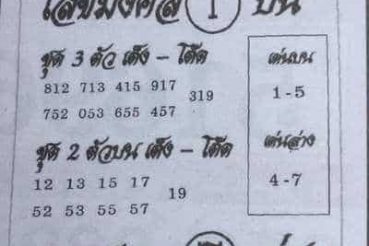 เลขมงคล 1 บน
ชุด 3 ตัว เต็ง – โต๊ด
812 713 415 917
319
752 053 655 457
เด่นบน
1-5
ชุด 2 ตัวบน เต็ง – โต๊ด
12 13 15 17
19
52 53 55 57
เด่นล่าง
4-7